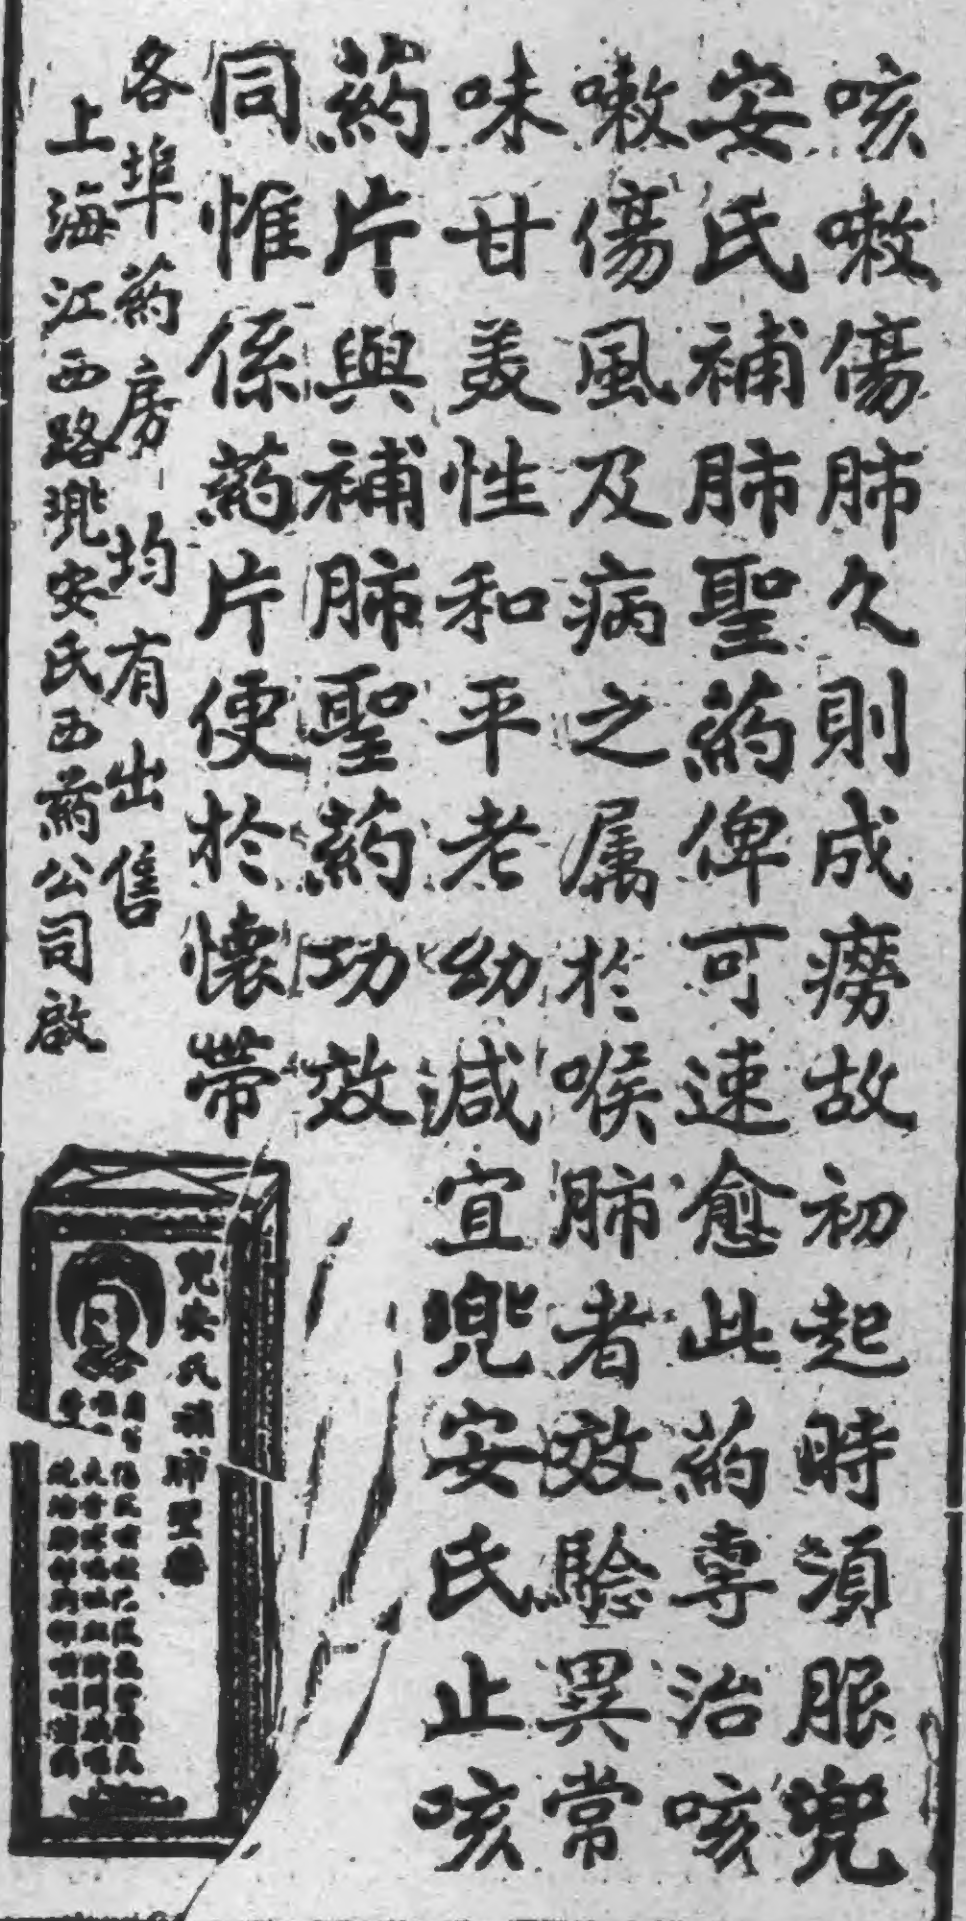 咳嗽傷肺久則成癆故初起時須服兜
安氏補肺聖葯俾可速愈此葯専治咳
嗽傷風及病之属於喉肺者效驗異常
味甘美性和平老幼咸宜兜安氏止咳
葯片與補肺聖葯功效
同惟係葯片便於懐帶
各埠葯房均有出售
上海江西路兜安氏西葯公司啟
兜安氏補肺聖藥